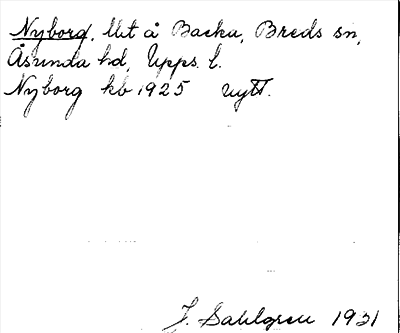 Nyborg, lht å Backa, Breds sn,
Åsunda hd, Upps. l.
Nyborg kb 1925 nytt.
J. Sahlgren 1931